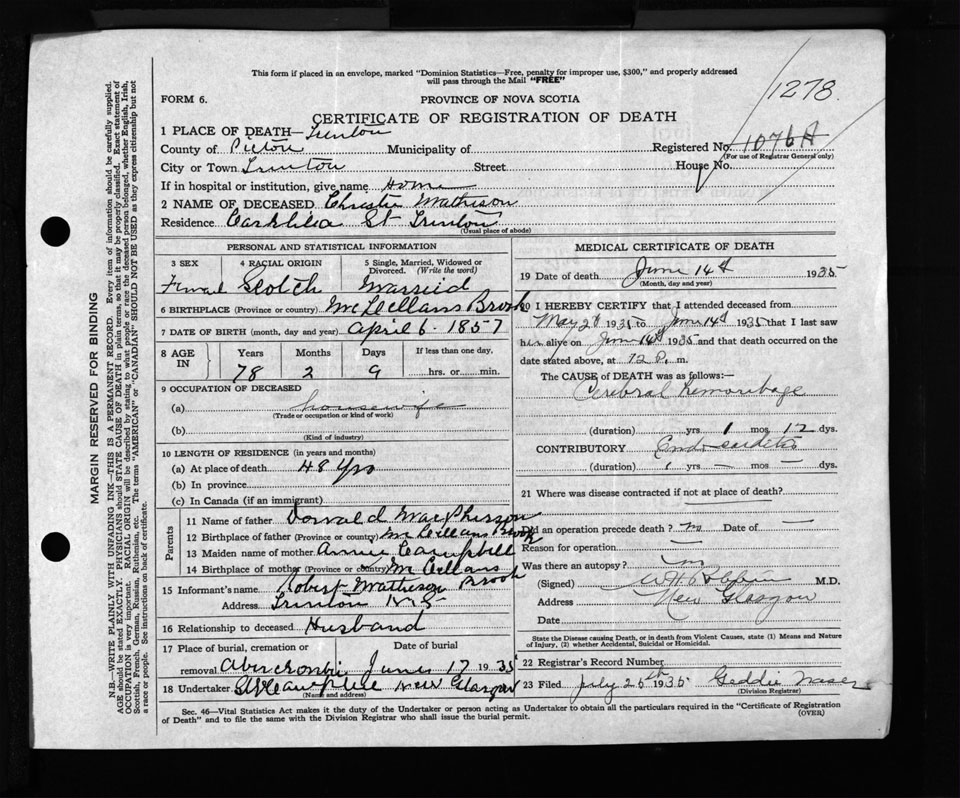 This form if placed in an envelope, marked "Dominion Statistics—Free, penalty for improper use, $300," and properly addressed
will pass through the Mail "FREE"
1278.
FORM 6.
PROVINCE OF NOVA SCOTIA
CERTIFICATE OF REGISTRATION OF DEATH
1 PLACE OF DEATH—Trenton
County of Pictou Municipality of Registered No. 1076A
(For use of Registrar General only)
City or Town Trenton Street House No.
If in hospital or institution, give name Home
2 NAME OF DECEASED Christie Mathison
Residence St Trenton
(Usual place of abode)
PERSONAL AND STATISTICAL INFORMATION
3 SEX 4 RACIAL ORIGIN 5 Single, Married, Widowed or Divorced. (Write the word)
Scotch Married
6 BIRTHPLACE (Province or country) McLellans Brook
7 DATE OF BIRTH (month, day and year) April 6. 1857
8 AGE IN Years Months Days If less than one day,
78 2 9 hrs. or min.
9 OCCUPATION OF DECEASED
(a) housewife
(Trade or occupation or kind of work)
(b)
(Kind of industry)
10 LENGTH OF RESIDENCE (in years and months)
(a) At place of death 48 Yrs
(b) In province
(c) In Canada (if an immigrant)
Parents
11 Name of father Donald MacPherson
12 Birthplace of father (Province or country) McLellans Brook
13 Maiden name of mother Annie Campbell
14 Birthplace of mother (Province or country) McLellans Brook
15 Informant's name Robert Matheson
Address Trenton N.S.
16 Relationship to deceased Husband
17 Place of burial, cremation or Date of burial
removal Abercrombie June 17 1935
18 Undertaker New Glasgow
(Name and address)
MEDICAL CERTIFICATE OF DEATH
19 Date of death June 14th 1935
(Month, day and year)
20 I HEREBY CERTIFY that I attended deceased from
May 2d 1935 to June 14th 1935 that I last saw
her alive on June 14th 1935 and that death occurred on the
date stated above, at 12 P. m.
The CAUSE of DEATH was as follows:—
Cerebral Hemorrhage
(duration) yrs 1 mos 12 dys.
CONTRIBUTORY Endocarditis
(duration) 1 yrs — mos — dys.
21 Where was disease contracted if not at place of death?
Did an operation precede death? no Date of —
Reason for operation —
Was there an autopsy? no
(Signed) M.D.
Address New Glasgow
Date
State the Disease causing Death, or in death from Violent Causes, state (1) Means and Nature
of Injury, and (2) whether Accidental, Suicidal or Homicidal.
22 Registrar's Record Number
23 Filed July 25th 1935 Geddie
(Division Registrar)
Sec. 46—Vital Statistics Act makes it the duty of the Undertaker or person acting as Undertaker to obtain all the particulars required in the "Certificate of Registration
of Death" and to file the same with the Division Registrar who shall issue the burial permit.
(OVER)
MARGIN RESERVED FOR BINDING
N.B.—WRITE PLAINLY WITH UNFADING INK—THIS IS A PERMANENT RECORD. Every item of information should be carefully supplied.
AGE should be stated EXACTLY. PHYSICIANS should STATE CAUSE OF DEATH in plain terms, so that it may be properly classified. Exact statement of
OCCUPATION is very important. RACIAL ORIGIN will be described by stating to what people or race the deceased person belonged, whether English, Irish,
Scottish, French, German, Russian, Ruthenian, etc. The terms "AMERICAN" or "CANADIAN" SHOULD NOT BE USED as they express citizenship but not
a race or people. See instructions on back of certificate.